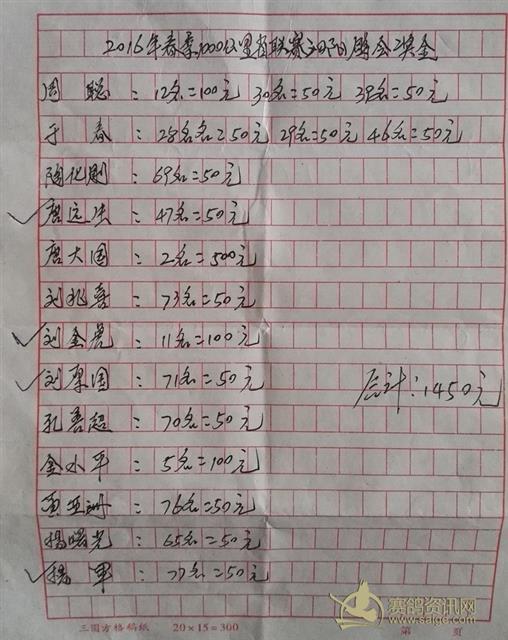 2016年春季1000公里省联赛 鸽会奖金
周聪：12名=100元 30名=50元 39名=50元
于春：28名名=50元 29名=50元 46名=50元
陶化刚：69名=50元
唐运法：47名=50元
唐大国：2名=500元
刘兆喜：73名=50元
刘金虎：11名=100元
刘厚国：71名=50元
合计：1450元
孔善超：70名=50元
金水平：5名=100元
贾亚洲：76名=50元
杨曙光：65名=50元
杨军：77名=50元
三圆方格稿纸 20×15=300 第 页
赛鸽资讯网
www.saige.com